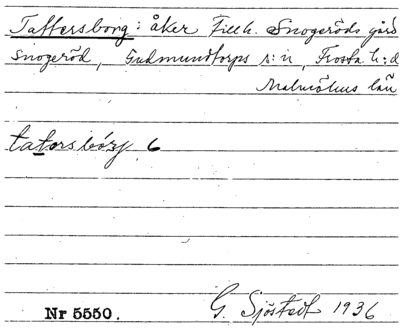 Tattersborg: åker Tillh. Snogeröds gård
Snogeröd, Gudmundtorps s:n, Frosta h:d
Malmöhus län
tatorsbórj 6
Nr 5550. G. Sjöstedt 1936